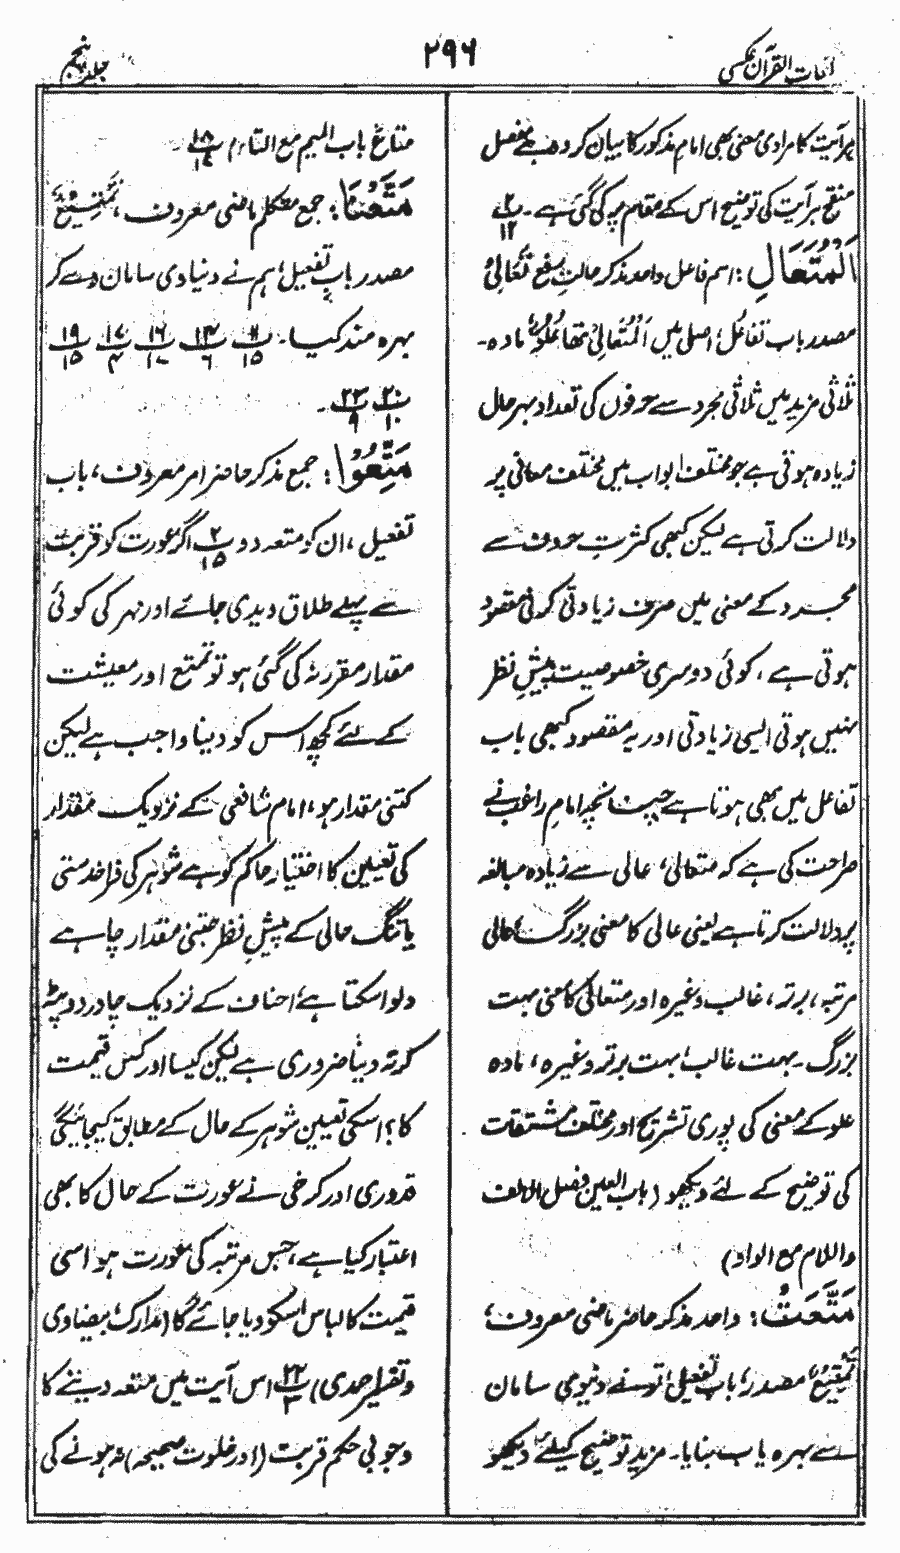 لغات القرآن عکسی
۲۹۶
جلد پنجم
ہر آیت کا مرادی معنی بھی امام مذکور کا بیان کردہ ہے مفصل
منقح ہر آیت کی توضیح اس کے مقام پر کی گئی ہے۔ ۲/۱۲
اَلْمُتَعَالِ: اسم فاعل واحد مذکر حالتِ رفع تَعَالِیْ
مصدر باب تفاعل، اصل میں اَلْمُتَعَالِیْ تھا عُلُوٌّ مادہ۔
ثلاثی مزید میں ثلاثی مجرد سے حرفوں کی تعداد بہر حال
زیادہ ہوتی ہے جو مختلف ابواب میں مختلف معانی پر
دلالت کرتی ہے لیکن کبھی کثرتِ حروف سے
مجرد کے معنی میں صرف زیادتی کرنی مقصود
ہوتی ہے، کوئی دوسری خصوصیت پیشِ نظر
نہیں ہوتی ایسی زیادتی اور یہ مقصود کبھی باب
تفاعل میں بھی ہوتا ہے چنانچہ امام راغب نے
صراحت کی ہے کہ متعالی، عالی سے زیادہ مبالغہ
پر دلالت کرتا ہے یعنی عالی کا معنی بزرگ، عالی
مرتبہ، برتر، غالب وغیرہ اور متعالی کا معنی بہت
بزرگ۔ بہت غالب، بہت برتر وغیرہ، مادہ
علو کے معنی کی پوری تشریح اور مختلف مشتقات
کی توضیح کے لئے دیکھو (باب العین فصل الالف
واللام مع الواو)
مَتَّعْتَ: واحد مذکر حاضر ماضی معروف،
تَمْتِیْعٌ، مصدر، باب تفعیل، تونے دنیوی سامان
سے بہرہ یاب بنایا۔ مزید توضیح کیلئے دیکھو
متاعٌ باب المیم مع التاء، ۱۸/۱۷
مَتَّعْنَا: جمع متکلم ماضی معروف، تَمْتِیْعٌ
مصدر باب تفعیل، ہم نے دنیاوی سامان دے کر
بہرہ مند کیا۔ ۷/۱۵ ۱۳/۶ ۱۶/۱۰ ۱۷/۴ ۱۹/۱۵
۲۰/۱۰ ۲۳/۹۔
مَتِّعُوْا: جمع مذکر حاضر امر معروف، باب
تفعیل، ان کو متعہ دو ۲/۱۵ اگر عورت کو قربت
سے پہلے طلاق دیدی جائے اور مہر کی کوئی
مقدار مقرر نہ کی گئی ہو تو تمتع اور معیشت
کے لئے کچھ اس کو دینا واجب ہے لیکن
کتنی مقدار ہو، امام شافعی کے نزدیک مقدار
کی تعیین کا اختیار حاکم کو ہے شوہر کی فراخدستی
یا تنگ حالی کے پیشِ نظر جتنی مقدار چاہے
دلوا سکتا ہے، احناف کے نزدیک چادر دوپٹہ
کرتہ دینا ضروری ہے لیکن کیسا اور کس قیمت
کا؟ اسکی تعیین شوہر کے حال کے مطابق کیجائیگی
قدوری اور کرخی نے عورت کے حال کا بھی
اعتبار کیا ہے، جس مرتبہ کی عورت ہو اسی
قیمت کا لباس اسکو دیا جائے گا (مدارک، بیضاوی
وتفسیر احمدی) ۲۲/۳ اس آیت میں متعہ دینے کا
وجوبی حکم قربت (اور خلوت صحیحہ) نہ ہونے کی